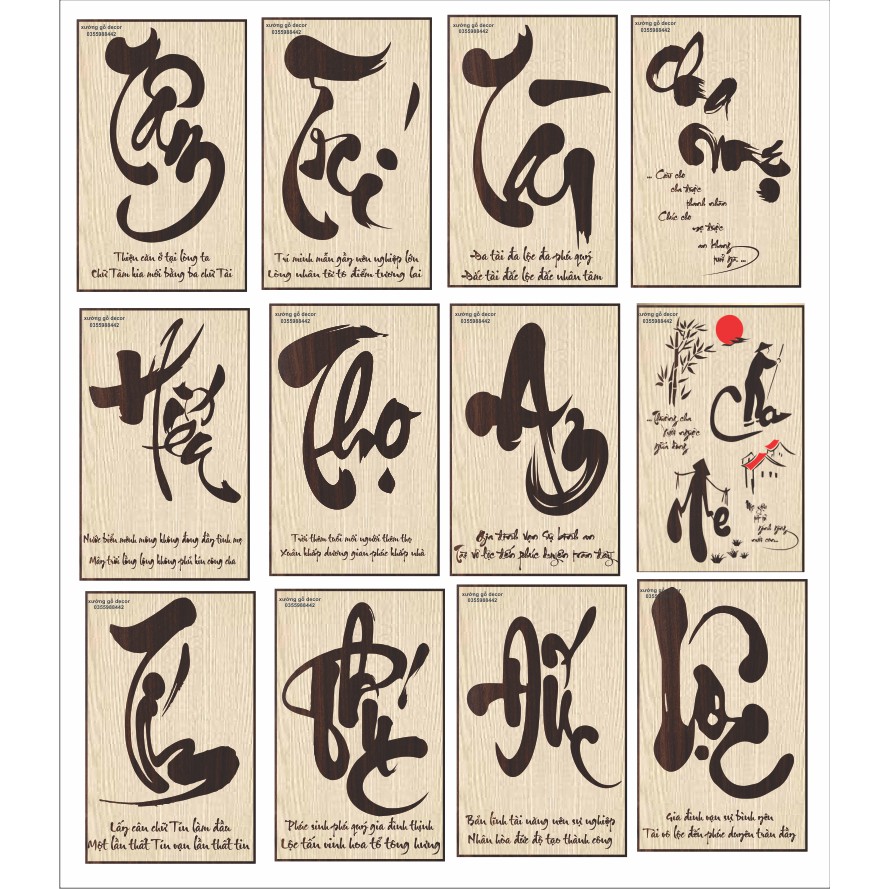 xưởng gỗ decor
0355988442
Tâm
Thiện căn ở tại lòng ta
Chữ Tâm kia mới bằng ba chữ Tài
xưởng gỗ decor
0355988442
Trí
Trí minh mẫn gây nên nghiệp lớn
Lòng nhân từ tô điểm tương lai
xưởng gỗ decor
0355988442
Tài
Đa tài đa lộc đa phú quý
Đắc tài đắc lộc đắc nhân tâm
xưởng gỗ decor
0355988442
Cha Mẹ
... Cầu cho
cha được
thanh nhàn
Chúc cho
mẹ được
an khang
xưởng gỗ decor
0355988442
Hiếu
Nước biển mênh mông không đong đầy tình mẹ
Mây trời lồng lộng không phủ kín công cha
xưởng gỗ decor
0355988442
Thọ
Trời thêm tuổi mới người thêm thọ
Xuân khắp dương gian phúc khắp nhà
xưởng gỗ decor
0355988442
An
Gia đình vạn sự bình an
Tài vô lộc tiến phúc duyên tràn đầy
xưởng gỗ decor
0355988442
Cha
Mẹ
xưởng gỗ decor
0355988442
Tín
Lấy câu chữ Tín làm đầu
Một lần thất Tín vạn lần thất tin
xưởng gỗ decor
0355988442
Phúc
Phúc sinh phú quý gia đình thịnh
Lộc tấn vinh hoa tổ tông hưng
xưởng gỗ decor
0355988442
Đức
Bản lĩnh tài năng nên sự nghiệp
Nhân hòa đức độ tạo thành công
xưởng gỗ decor
0355988442
Lộc
Gia đình vạn sự bình yên
Tài vô lộc đến phúc duyên tràn đầy